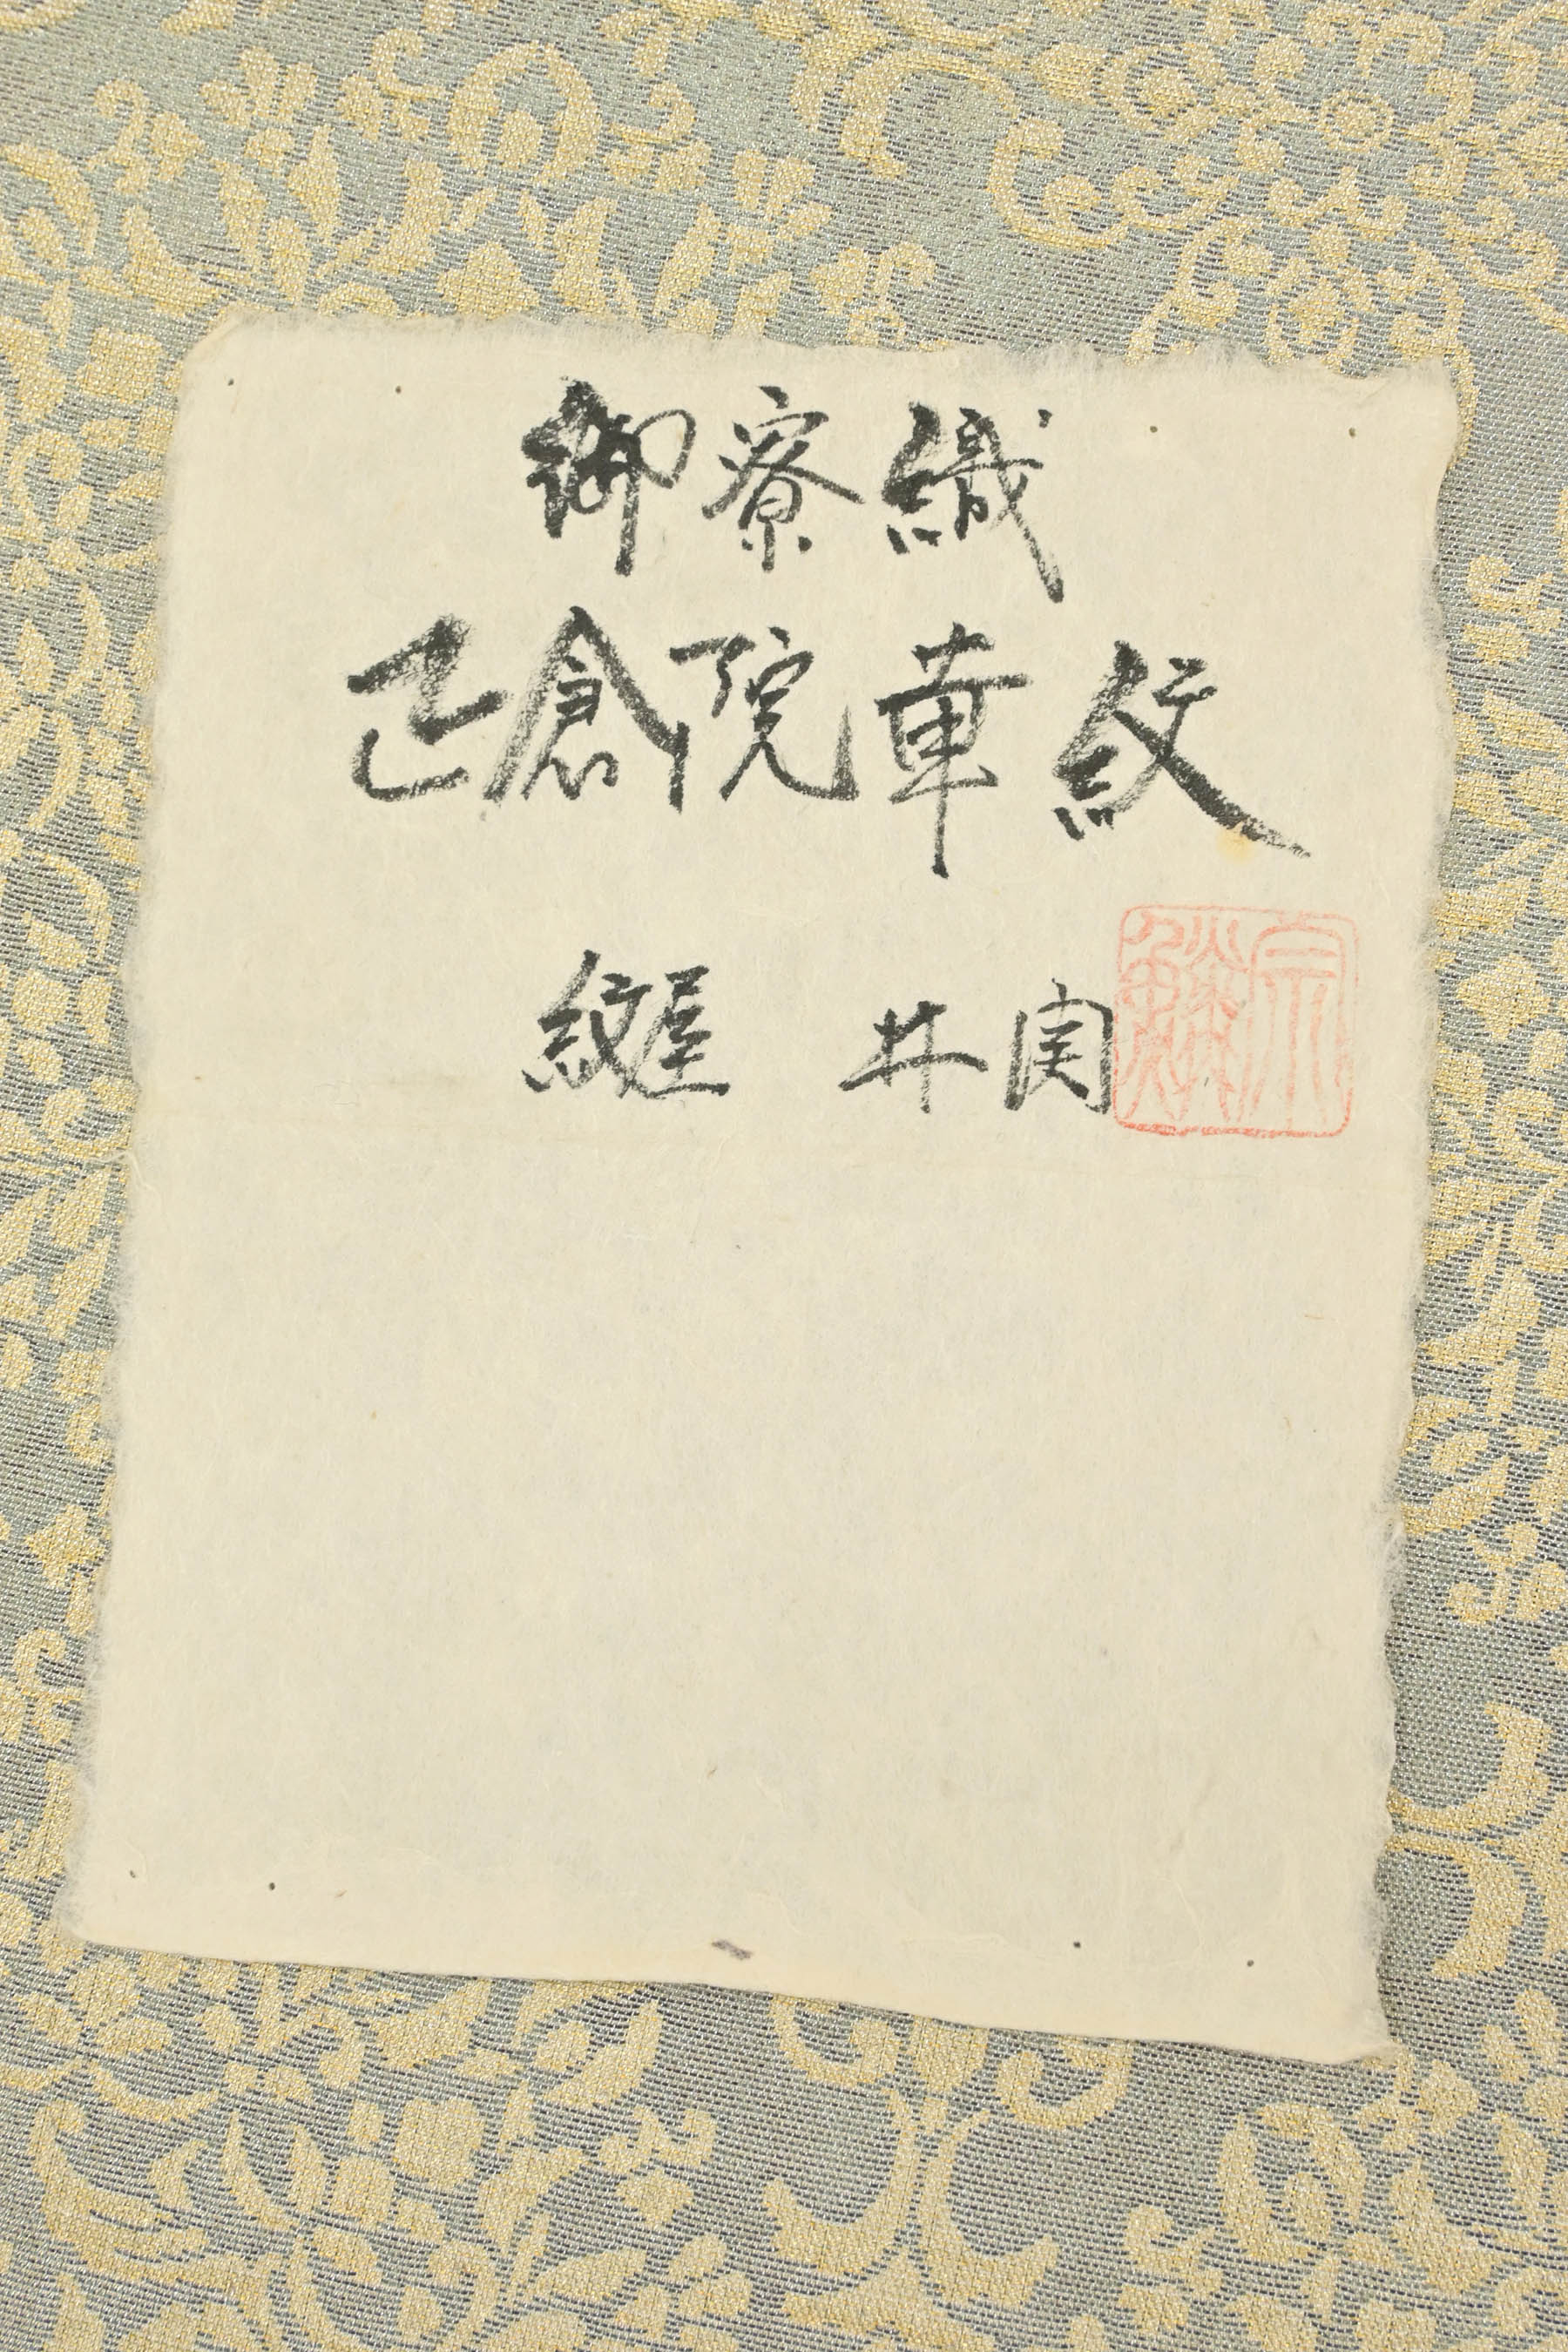 御寮織
正倉院華紋
紋屋 井関
宗鱗